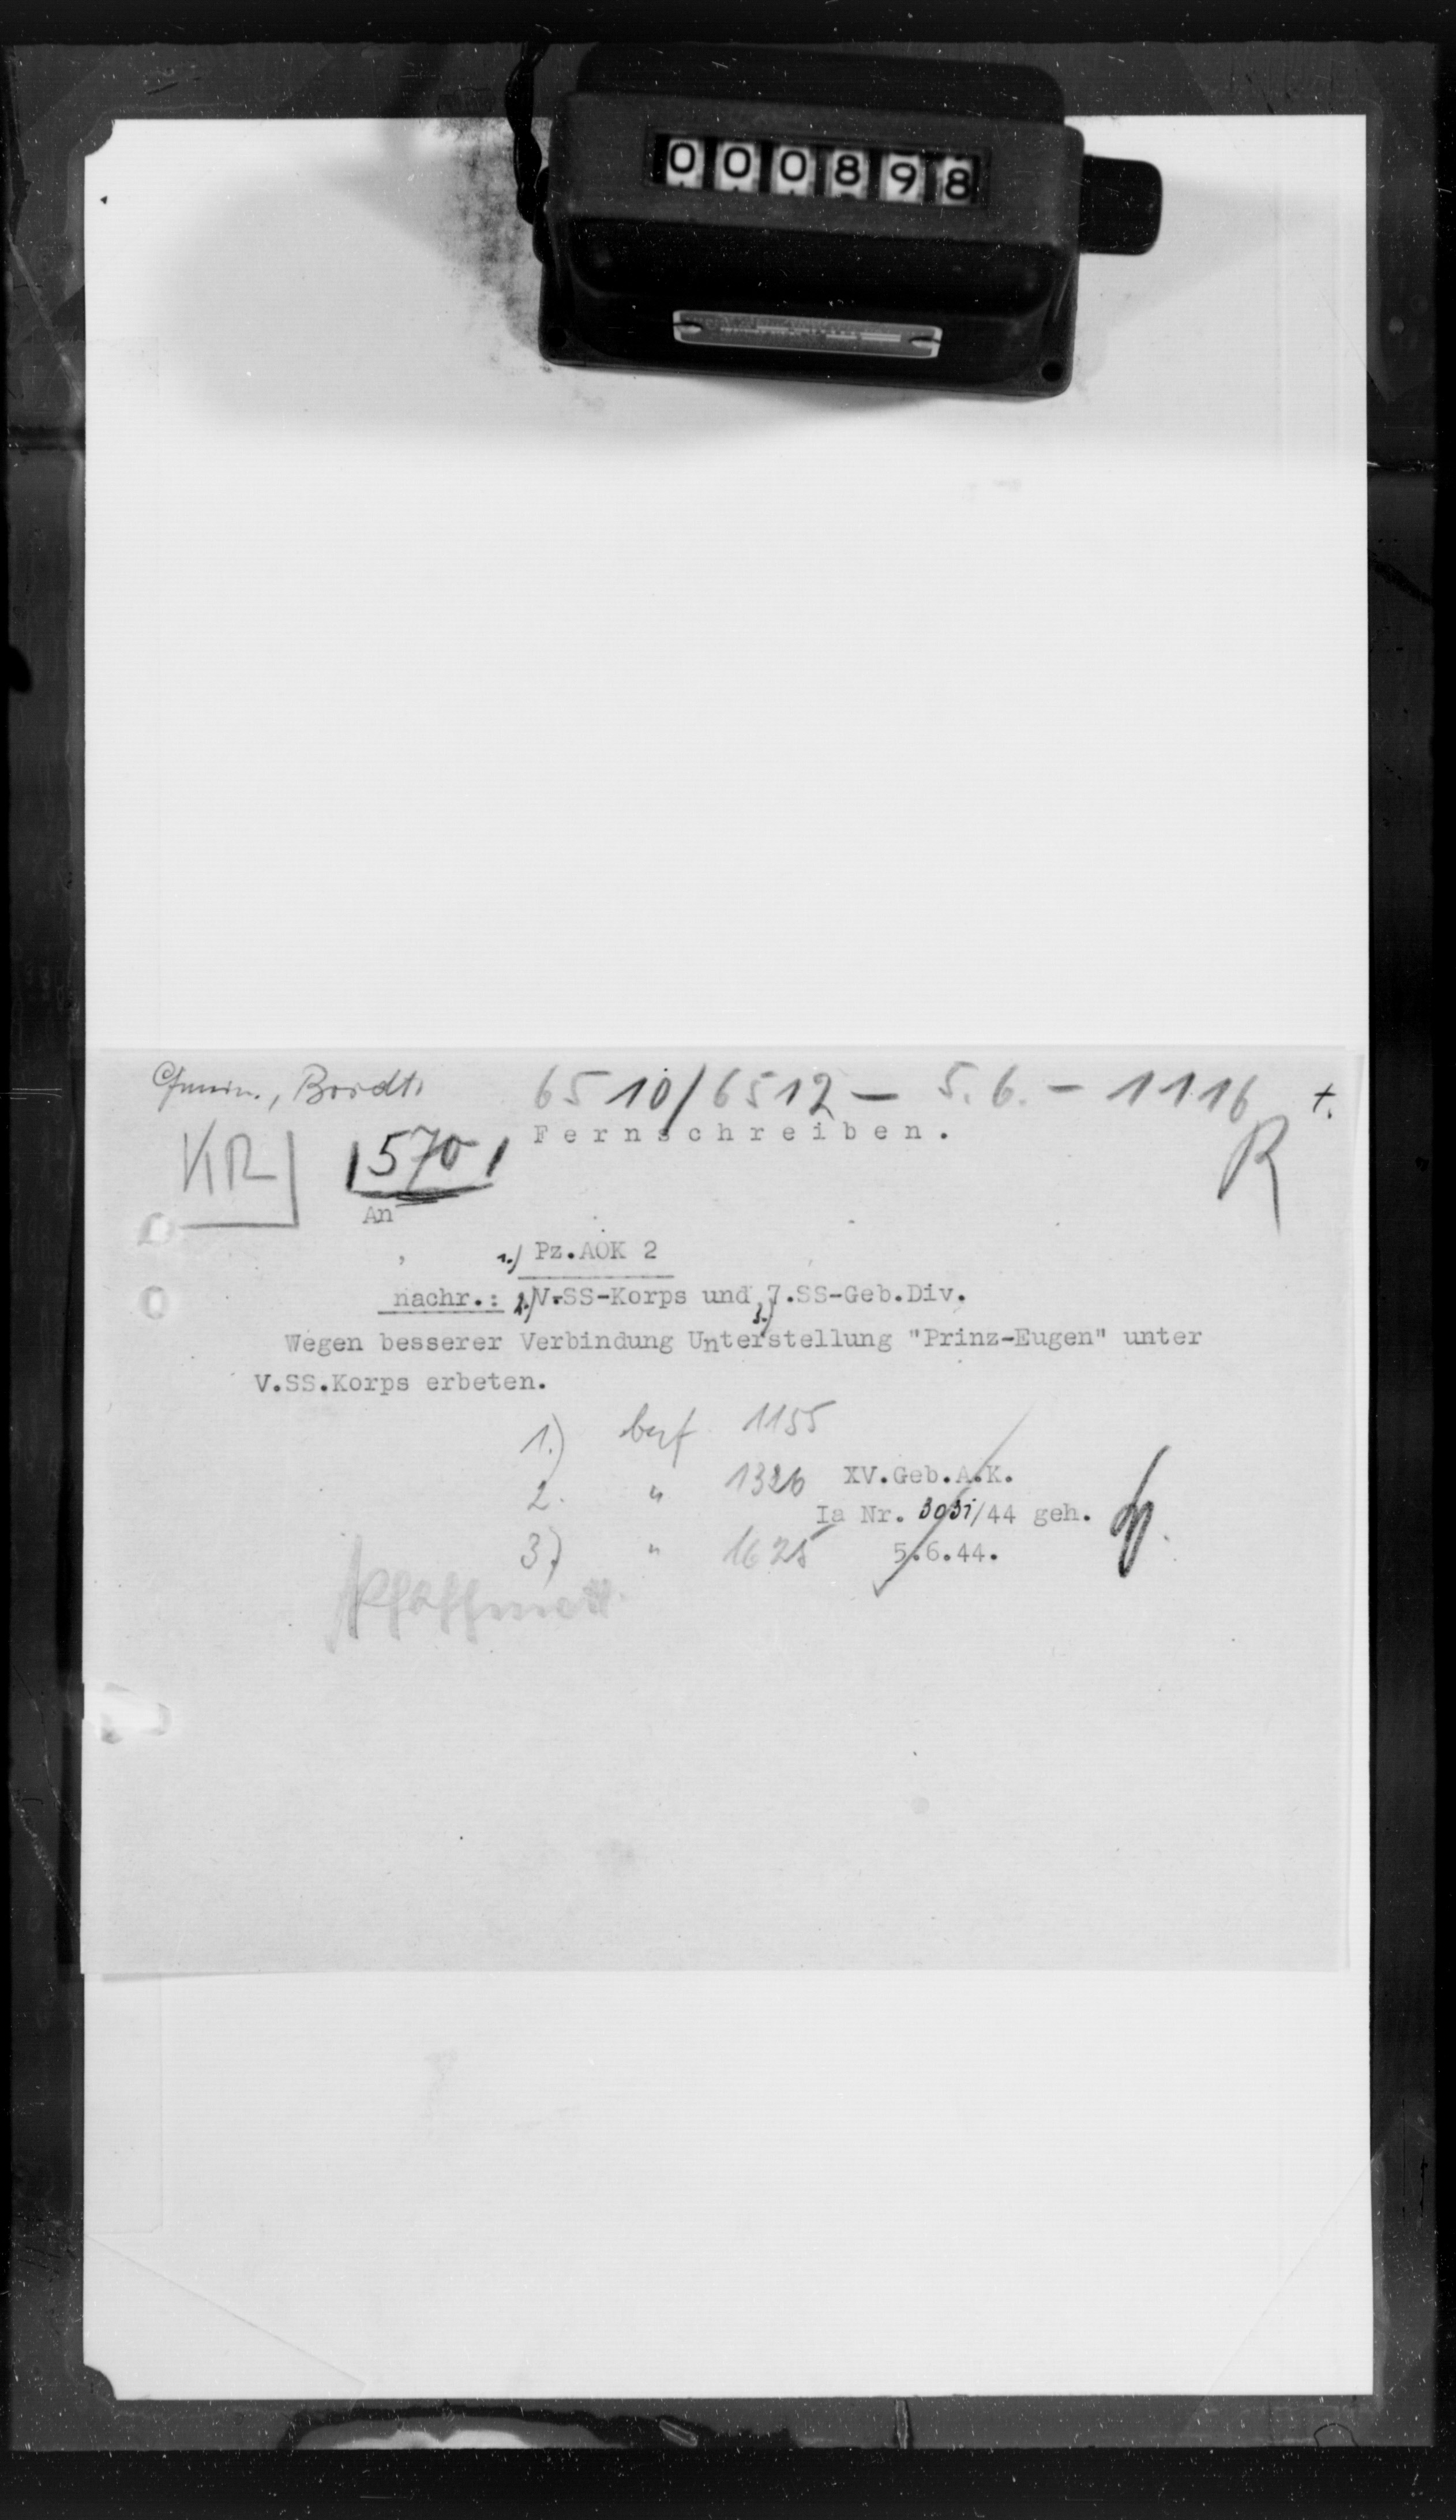 000898
Bordt.
6510/6512 - 5.6. - 1116 +.
Fernschreiben.
KR 1570 R
An
1.) Pz.AOK 2
nachr.: 2.) V.SS-Korps und 3.) 7.SS-Geb.Div.
Wegen besserer Verbindung Unterstellung "Prinz-Eugen" unter
V.SS.Korps erbeten.
1.) 1155
2. " 1326 XV.Geb.A.K.
Ia Nr. /44 geh.
3.) " 1625 5.6.44.